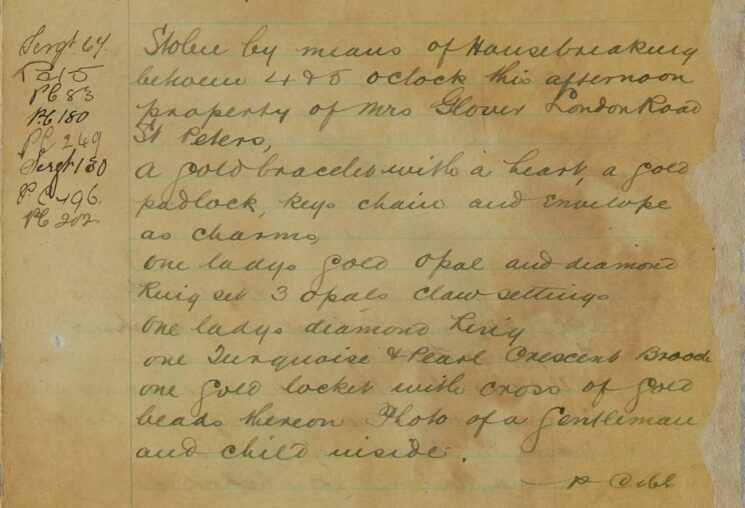 Sergt 64.
PC 15
PC 83
PC 180
PC 249
Sergt 130
P.C 496.
PC 202
Stolen by means of Housebreaking
between 4 & 5 oclock this afternoon
property of Mrs Glover London Road
St Peters,
a gold bracelet with a heart, a gold
padlock, keys chain and Envelope
as charms,
one ladys gold opal and diamond
Ring set 3 opals claw settings
one ladys diamond Ring
one Turquoise & Pearl Crescent Brooch
one gold locket with cross of gold
beads thereon Photo of a Gentleman
and child inside.